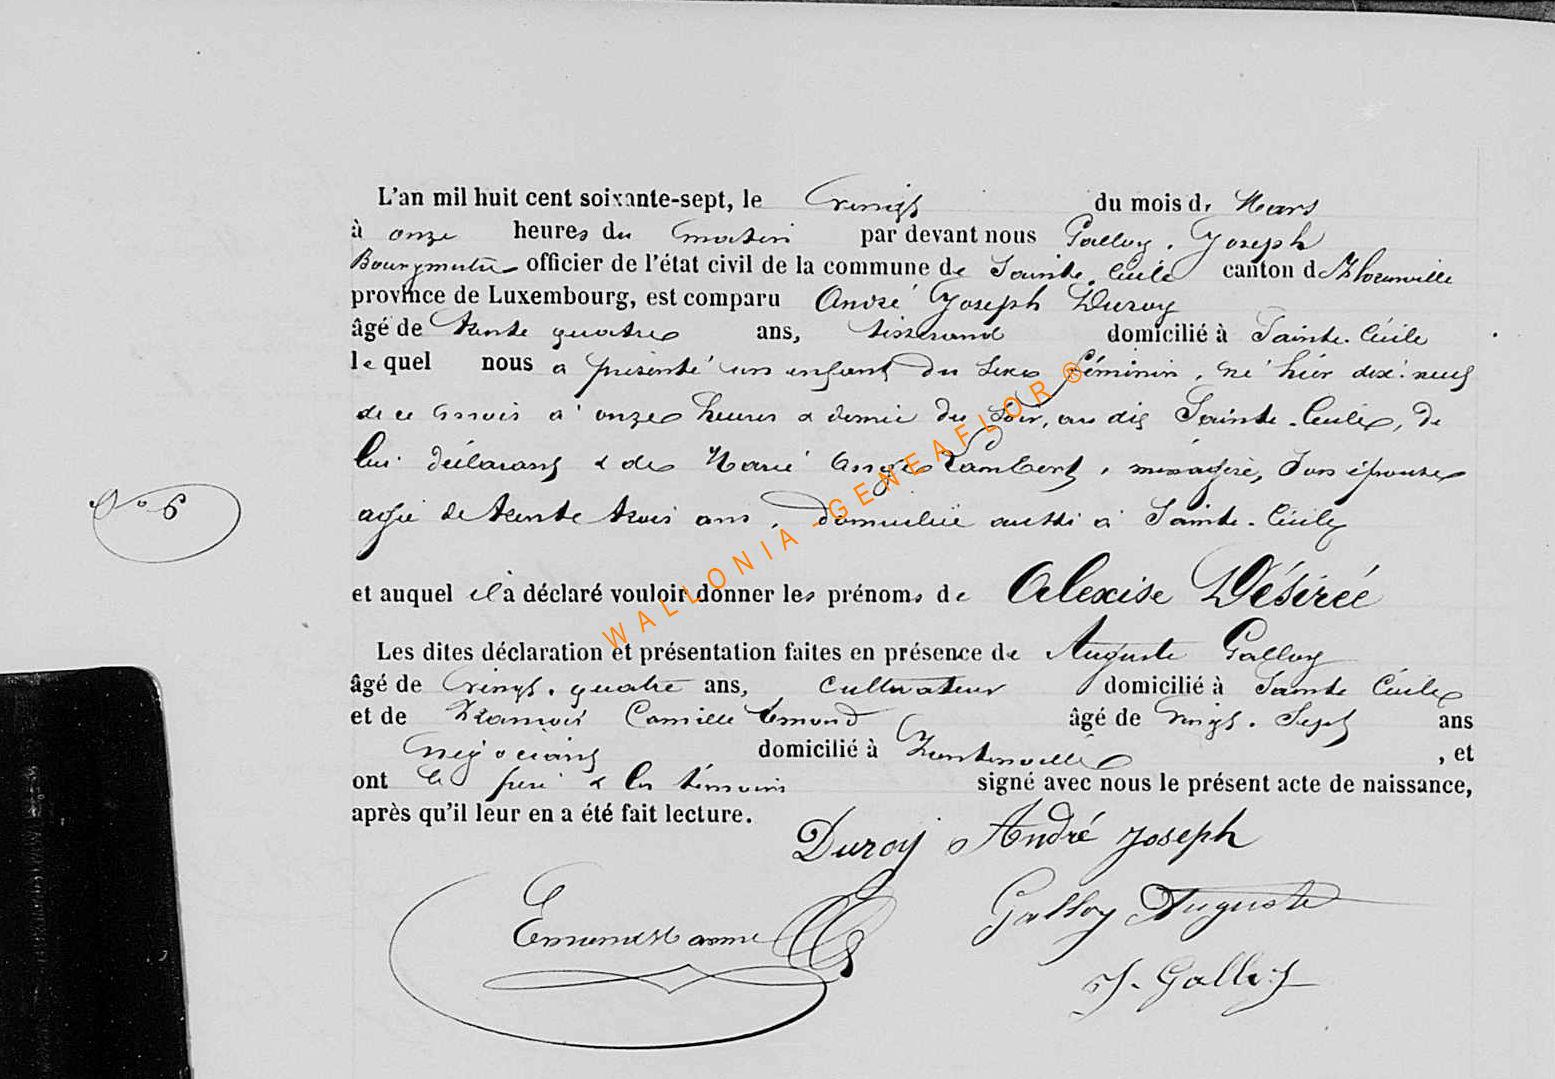 L'an mil huit cent soixante-sept, le vingt du mois de Mars
à onze heures du matin par devant nous Galloy, Joseph
Bourgmestre officier de l'état civil de la commune de Sainte Cécile canton de Florenville
province de Luxembourg, est comparu André Joseph Duroy
âgé de trente quatre ans, tisserand domicilié à Sainte-Cécile
lequel nous a présenté un enfant du sexe féminin, né hier dix-neuf
de ce mois à onze heures & demie du soir, au dit Sainte-Cécile, de
lui déclarant & de Marie Ange Lambert, ménagère, son épouse
N° 6
agée de trente trois ans, domiciliée aussi à Sainte-Cécile
et auquel il a déclaré vouloir donner les prénoms de Alexise Désirée
Les dites déclaration et présentation faites en présence de Auguste Galloy
âgé de vingt-quatre ans, cultivateur domicilié à Sainte Cécile
et de Camille Emond âgé de vingt-sept ans
négociant domicilié à , et
ont le père & les témoins signé avec nous le présent acte de naissance,
après qu'il leur en a été fait lecture.
Duroy André Joseph
Emond
Galloy Auguste
J. Galloy
WALLONIA-GENEAFLOR®